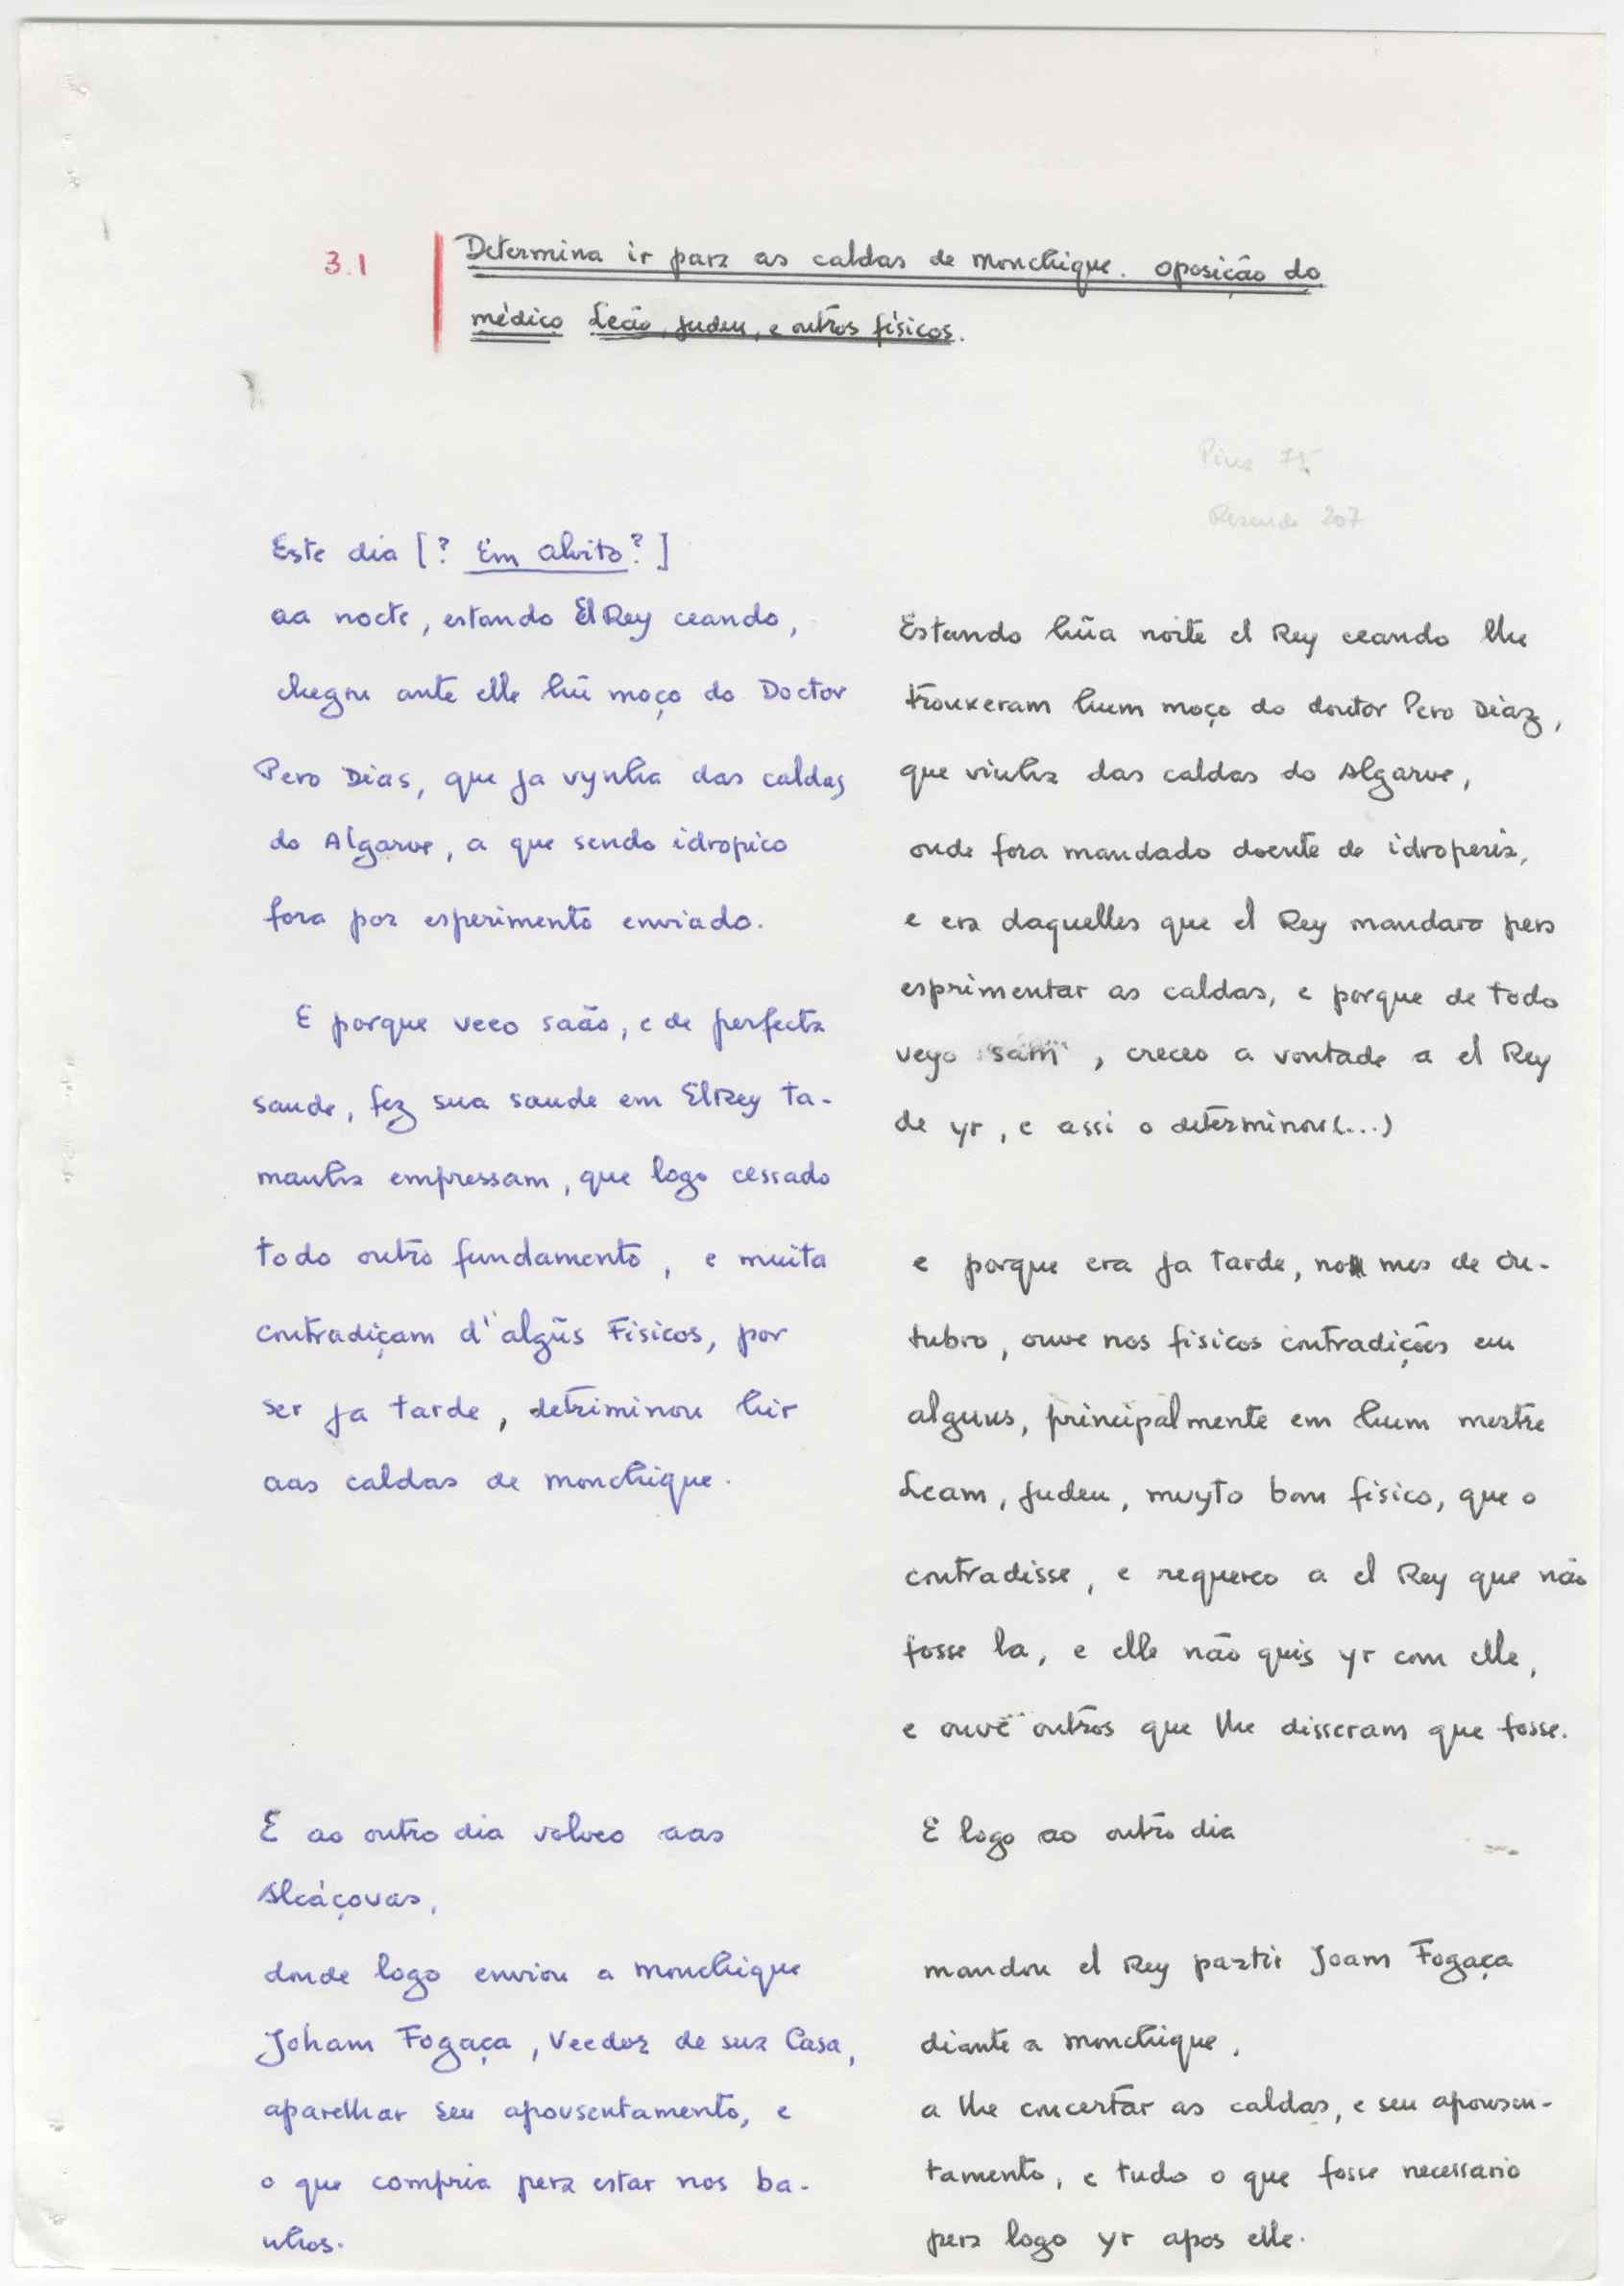 3.1
Determina ir para as caldas de Monchique. Oposição do
médico Leão, judeu, e outros físicos.
Pina 75
Resende 207
Este dia [? Em Alvito?]
aa nocte, estando ElRey ceando,
chegou ante elle hũ moço do Doctor
Pero Dias, que ja vynha das caldas
do Algarve, a que sendo idropico
fora por esperimento enviado.
E porque veeo saão, e de perfecta
saude, fez sua saude em ElRey ta-
manha empressam, que logo cessado
todo outro fundamento, e muita
contradiçam d'algũs Fisicos, por
ser ja tarde, detriminou hir
aas caldas de Monchique.
E ao outro dia volveo aas
Alcáçovas,
donde logo enviou a Monchique
Joham Fogaça, Veedor de sua Casa,
aparelhar seu apousentamento, e
o que compria pera estar nos ba-
nhos.
Estando hũa noite el Rey ceando lhe
trouxeram hum moço do doutor Pero Diaz,
que vinha das caldas do Algarve,
onde fora mandado doente de idropesia,
e era daquelles que el Rey mandara pera
esprimentar as caldas, e porque de todo
veyo sam, creceo a vontade a el Rey
de yr, e assi o determinou (...)
e porque era ja tarde, no mes de Ou-
tubro, ouve nos fisicos contradições em
alguns, principalmente em hum mestre
Leam, judeu, muyto bom fisico, que o
contradisse, e requereo a el Rey que não
fosse la, e elle não quis yr com elle,
e ouve outros que lhe disseram que fosse.
E logo ao outro dia
mandou el Rey partir Joam Fogaça
diante a Monchique,
a lhe concertar as caldas, e seu apousen-
tamento, e tudo o que fosse necessario
pera logo yr apos elle.